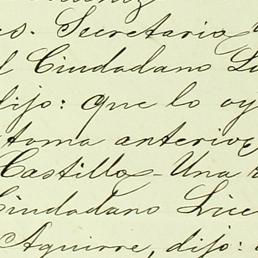 os. Secretario
l Ciudadano Li
dijo: que lo oy
toma anterior
Castillo - Una
Ciudadano Lice
Aguirre, dijo: